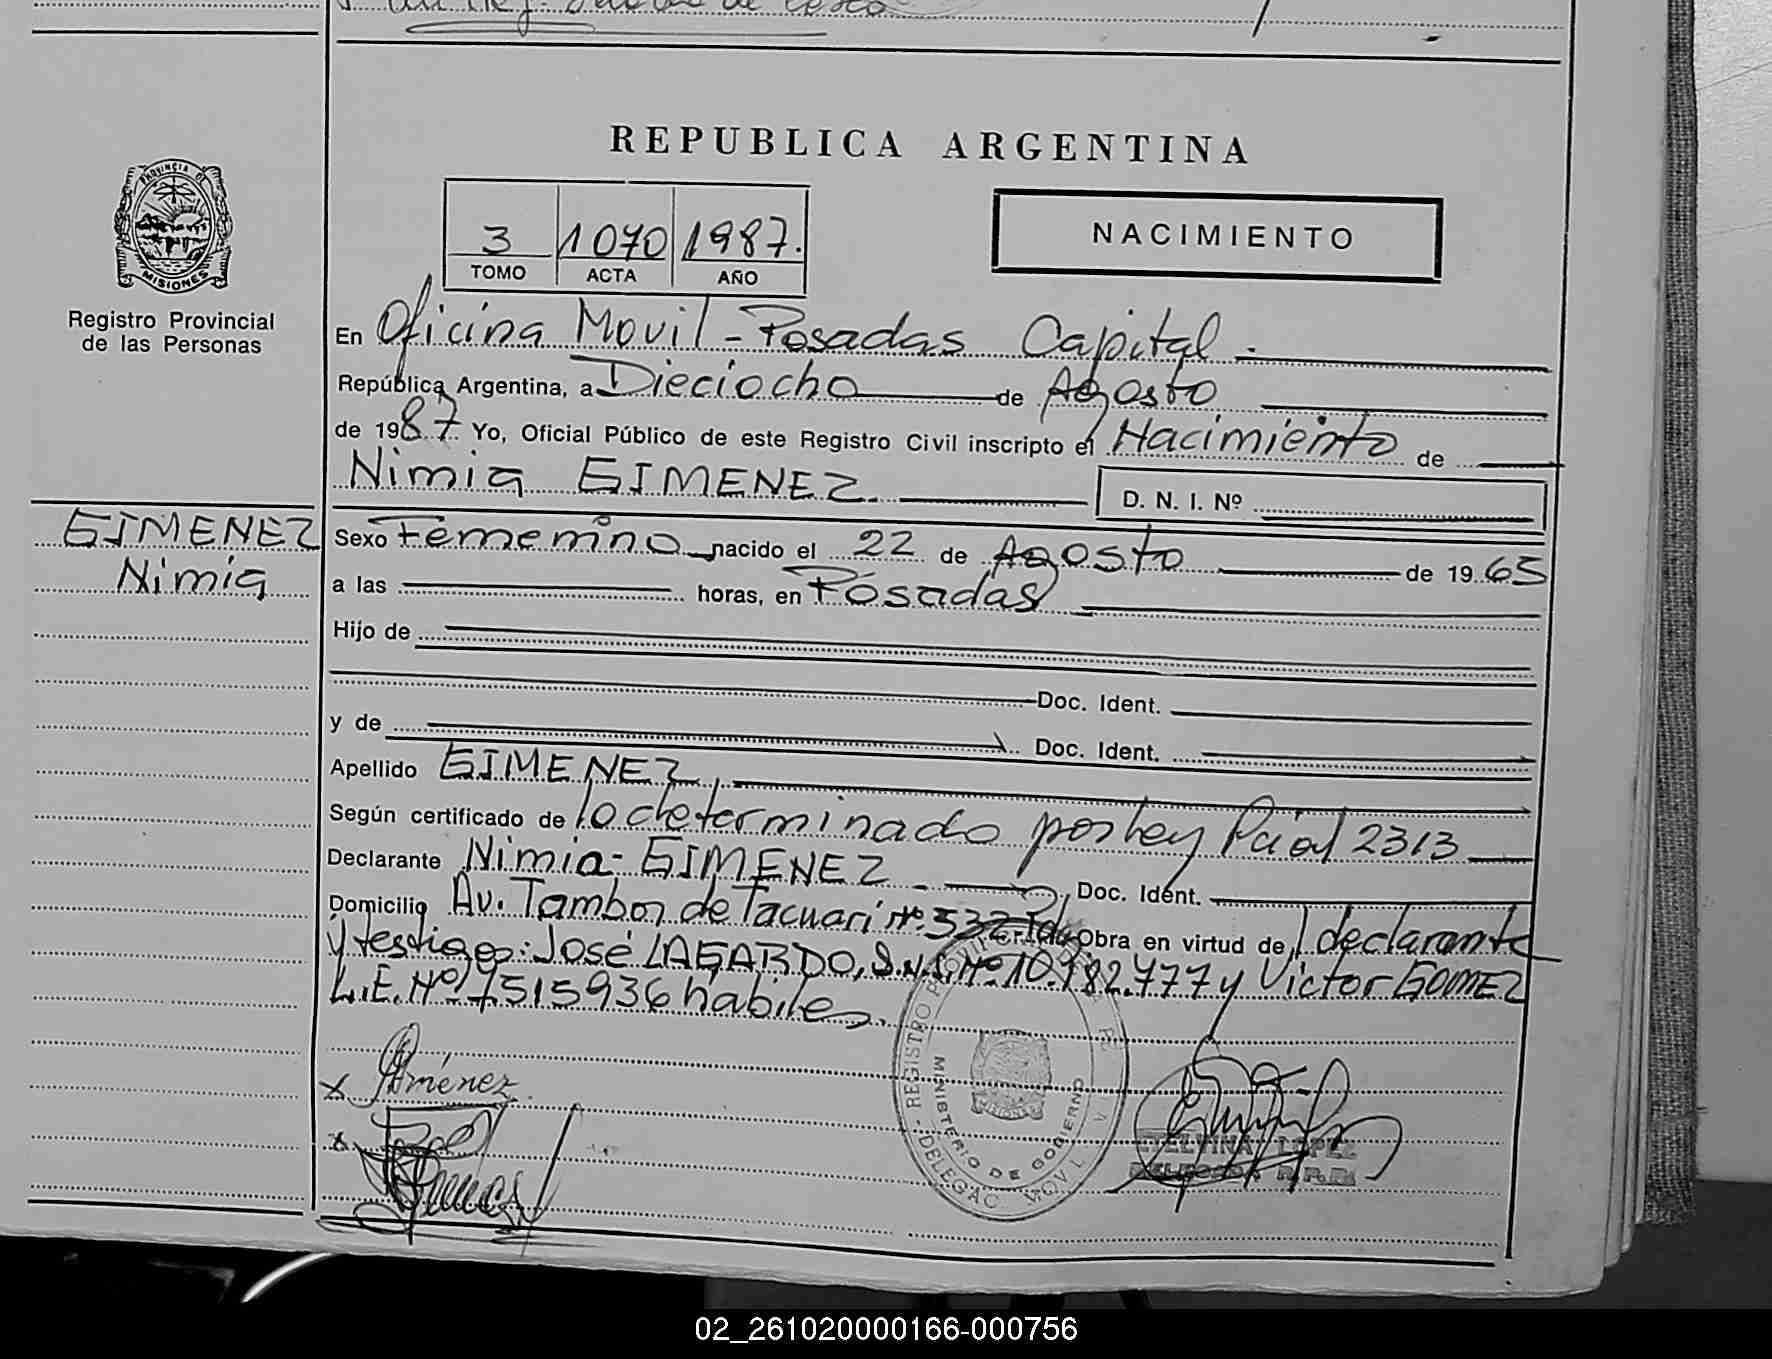 REPUBLICA ARGENTINA
PROVINCIA DE
MISIONES
Registro Provincial
de las Personas
3 1070 1987.
TOMO ACTA AÑO
NACIMIENTO
En Oficina Movil - Posadas Capital.
República Argentina, a Dieciocho de Agosto
de 1987. Yo, Oficial Público de este Registro Civil inscripto el Nacimiento de
Nimia GIMENEZ. D. N. I. Nº
GIMENEZ
Nimia
Sexo Femenino nacido el 22 de Agosto de 1965
a las horas, en Posadas
Hijo de
Doc. Ident.
y de Doc. Ident.
Apellido GIMENEZ.
Según certificado de lo determinado por ley Pcial 2313
Declarante Nimia GIMENEZ Doc. Ident.
Domicilio Av. Tambor de Tacuari Nº. 532 Obra en virtud de l declarante
y testigos: José LAGARDO, Nº 10.982.777 y Victor GOMEZ
L.E. Nº 7515936 habiles.
x Giménez
x
REGISTRO
MINISTERIO DE GOBIERNO
MISIONES
DELEGAC MOVIL
ETELVINA LOPEZ
DELEGADA R.P.P.
02_261020000166-000756